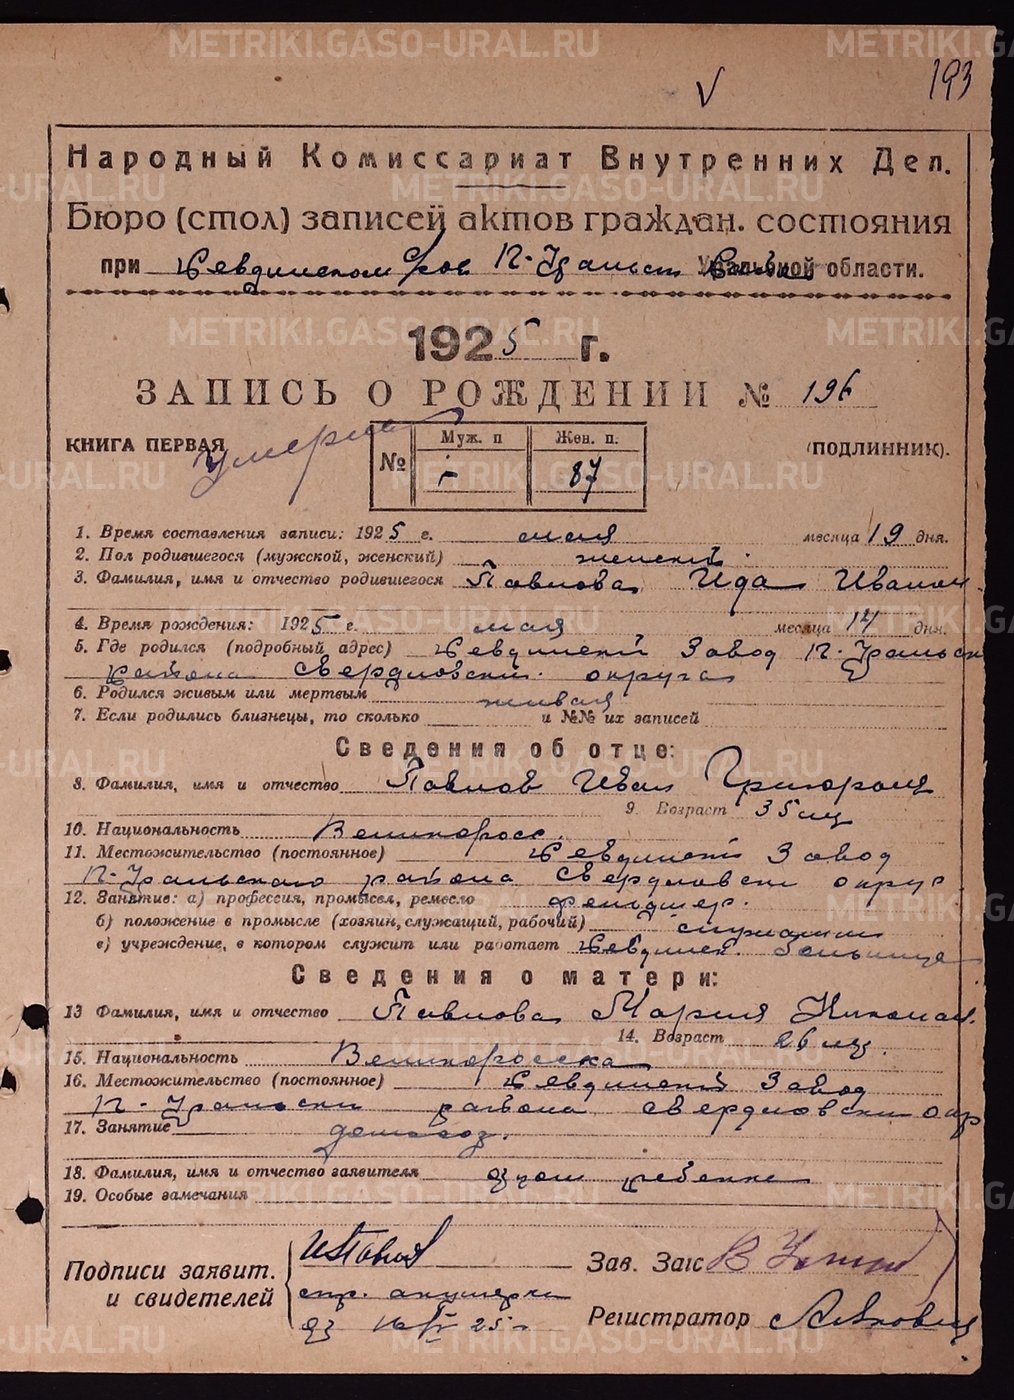 METRIKI.GASO-URAL.RU
193
Народный Комиссариат Внутренних Дел.
Бюро (стол) записей актов граждан. состояния
при Ревдинском П-Уральск Уральской области.
1925 г.
ЗАПИСЬ О РОЖДЕНИИ № 196
КНИГА ПЕРВАЯ (ПОДЛИННИК).
умерла
№ Муж. п Жен. п.
- 87
1. Время составления записи: 1925 г. мая месяца 19 дня.
2. Пол родившегося (мужской, женский) женский.
3. Фамилия, имя и отчество родившегося Павлова Ида Иванов.
4. Время рождения: 1925 г. мая месяца 14 дня.
5. Где родился (подробный адрес) Ревдинский Завод П-Уральск
района Свердловский округа
6. Родился живым или мертвым живая
7. Если родились близнецы, то сколько и №№ их записей
Сведения об отце:
8. Фамилия, имя и отчество Павлов Иван Григорьев
9. Возраст 35 лет
10. Национальность Великоросс.
11. Местожительство (постоянное) Ревдинский Завод
П-Уральского района Свердловск округ
12. Занятие: а) профессия, промысел, ремесло фельдшер.
б) положение в промысле (хозяин, служащий, рабочий) служащий
в) учреждение, в котором служит или работает Ревдинск. больница
Сведения о матери:
13 Фамилия, имя и отчество Павлова Мария Николаев.
14. Возраст 26 лет.
15. Национальность Великоросска
16. Местожительство (постоянное) Ревдинский Завод
П-Уральский района Свердловский окр
17. Занятие домхоз.
18. Фамилия, имя и отчество заявителя отец ребенка
19. Особые замечания
Подписи заявит. и свидетелей
ИПавлов
спр. акушерки
16/V 25 г
Зав. Загс
Регистратор